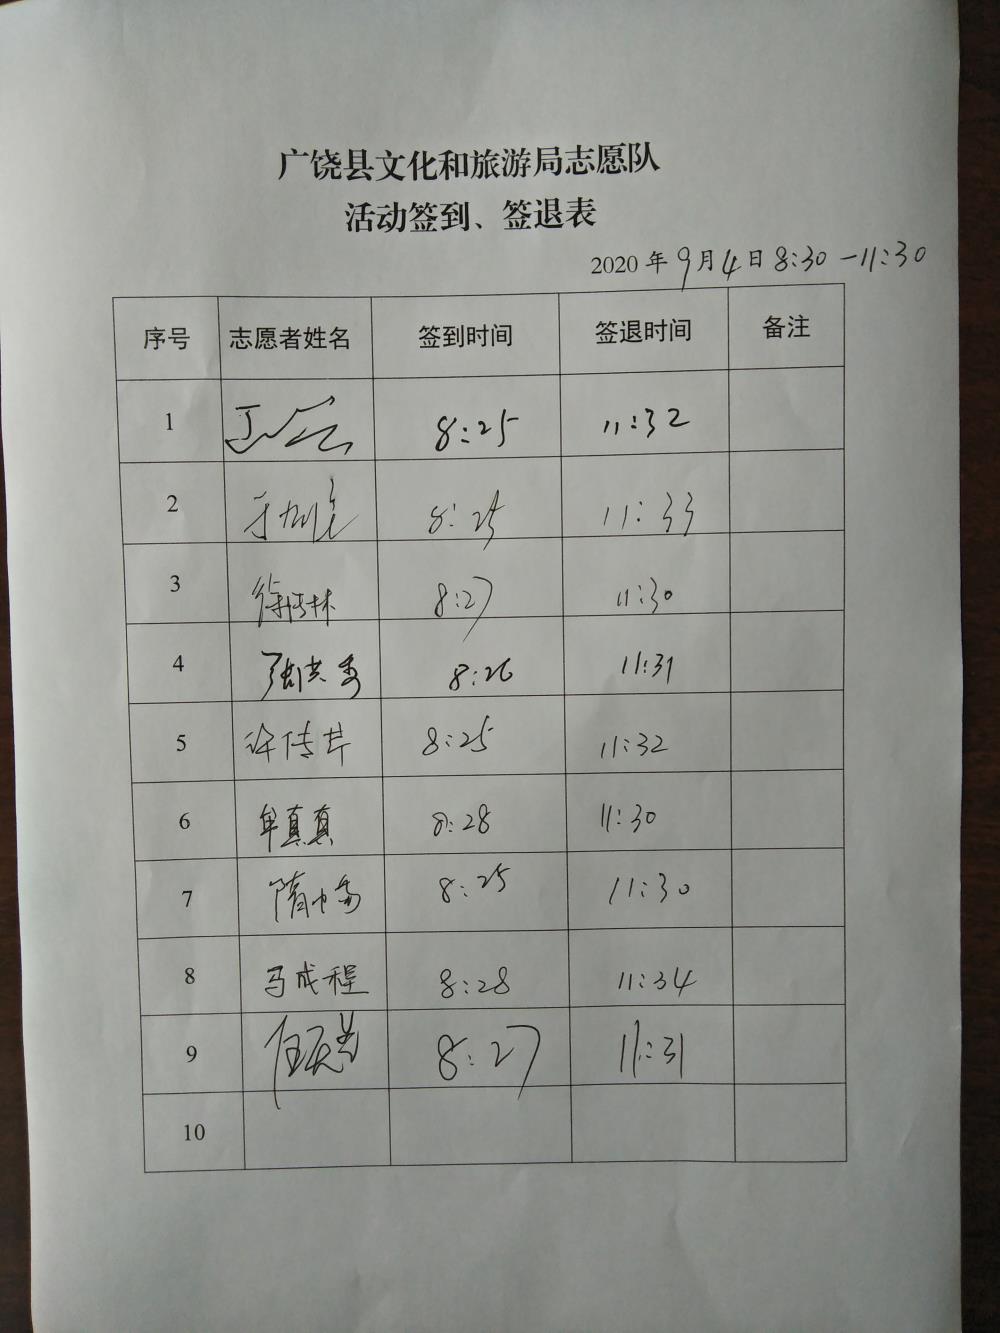 广饶县文化和旅游局志愿队
活动签到、签退表
2020年9月4日8:30-11:30
序号 志愿者姓名 签到时间 签退时间 备注
1 8:25 11:32
2 8:25 11:33
3 8:27 11:30
4 8:26 11:31
5 许传芹 8:25 11:32
6 牟真真 8:28 11:30
7 8:25 11:30
8 马成程 8:28 11:34
9 8:27 11:31
10